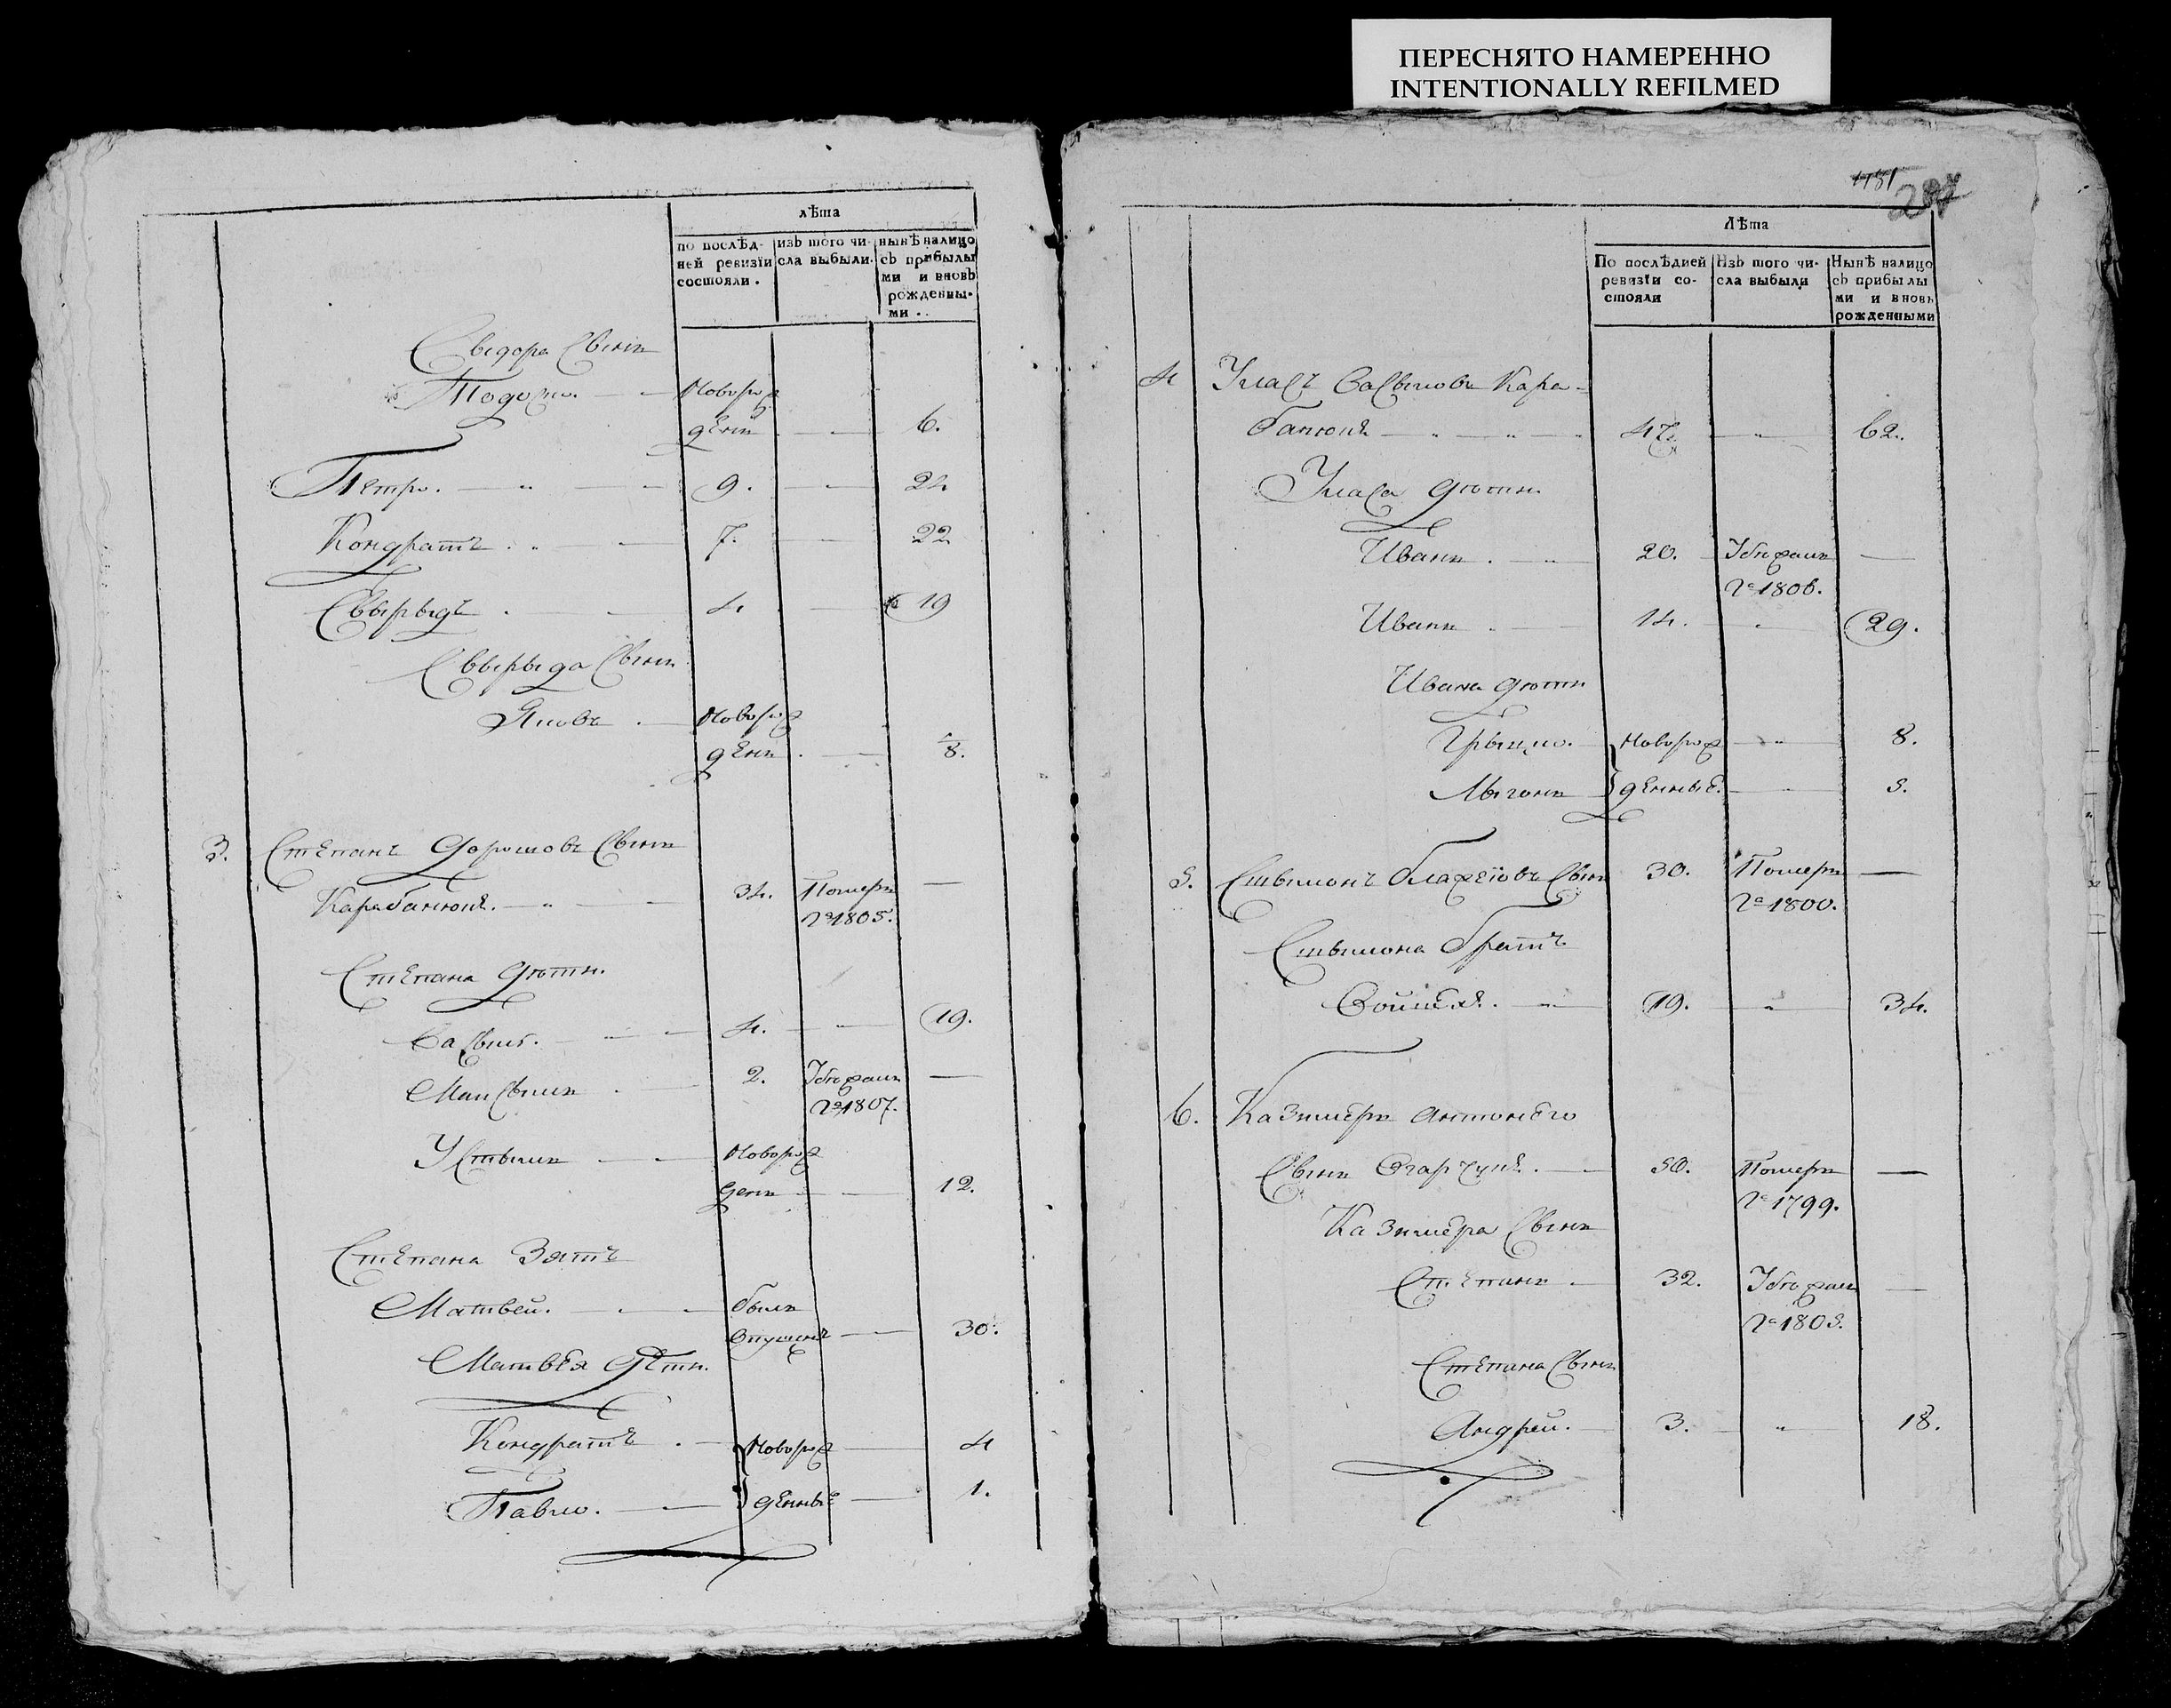 ПЕРЕСНЯТО НАМЕРЕННО
INTENTIONALLY REFILMED
лѣта
по послѣд-ней ревизїи состояли.
изъ того чи-сла выбыли.
нынѣ налицо съ прибылыми и вновь рожденны-ми..
Сыдора Сынъ
Тодосъ. Новорож
денъ 6.
Петро. 9. 24
Кондратъ. 7. 22
Свырыдъ 4 19
Свырыда Сынъ
Яковъ Новорож
денъ 8.
3. Степанъ Дорошовъ Сынъ
Карабанюкъ. 34. Померъ —
Гᵒ 1805.
Степана дѣти.
Василь. 4. 19.
Максымъ 2. Убѣжалъ —
Гᵒ 1807.
Устымъ Новорож
денъ 12.
Степана Зять
Матвей. былъ
опущенъ 30.
Матвѣя Дѣти.
Кондратъ. Новорож 4
Павло. денные 1.
1181
287
Лѣта
По послѣдней ревизїи со-стояли
Изъ того чи-сла выбыли
Нынѣ налицо съ прибылыми и вновь рожденными
4 Уласъ Васыловъ Кара-
банюкъ 47. 62.
Уласа дѣти
Иванъ. 20. Убѣжалъ —
Гᵒ 1806.
Иванъ 14. 29.
Ивана дѣти
Грыцко. Новорож 8.
денные. 5.
5. Сынъ 30. Померъ —
Гᵒ 1800.
братъ
19. 34.
6. Казимеръ Антонего
Сынъ 50. Померъ —
Гᵒ 1799.
Казимера Сынъ
Степанъ 32. Убѣжалъ —
Гᵒ 1805.
Степана Сынъ
Андрей. 3. 18.